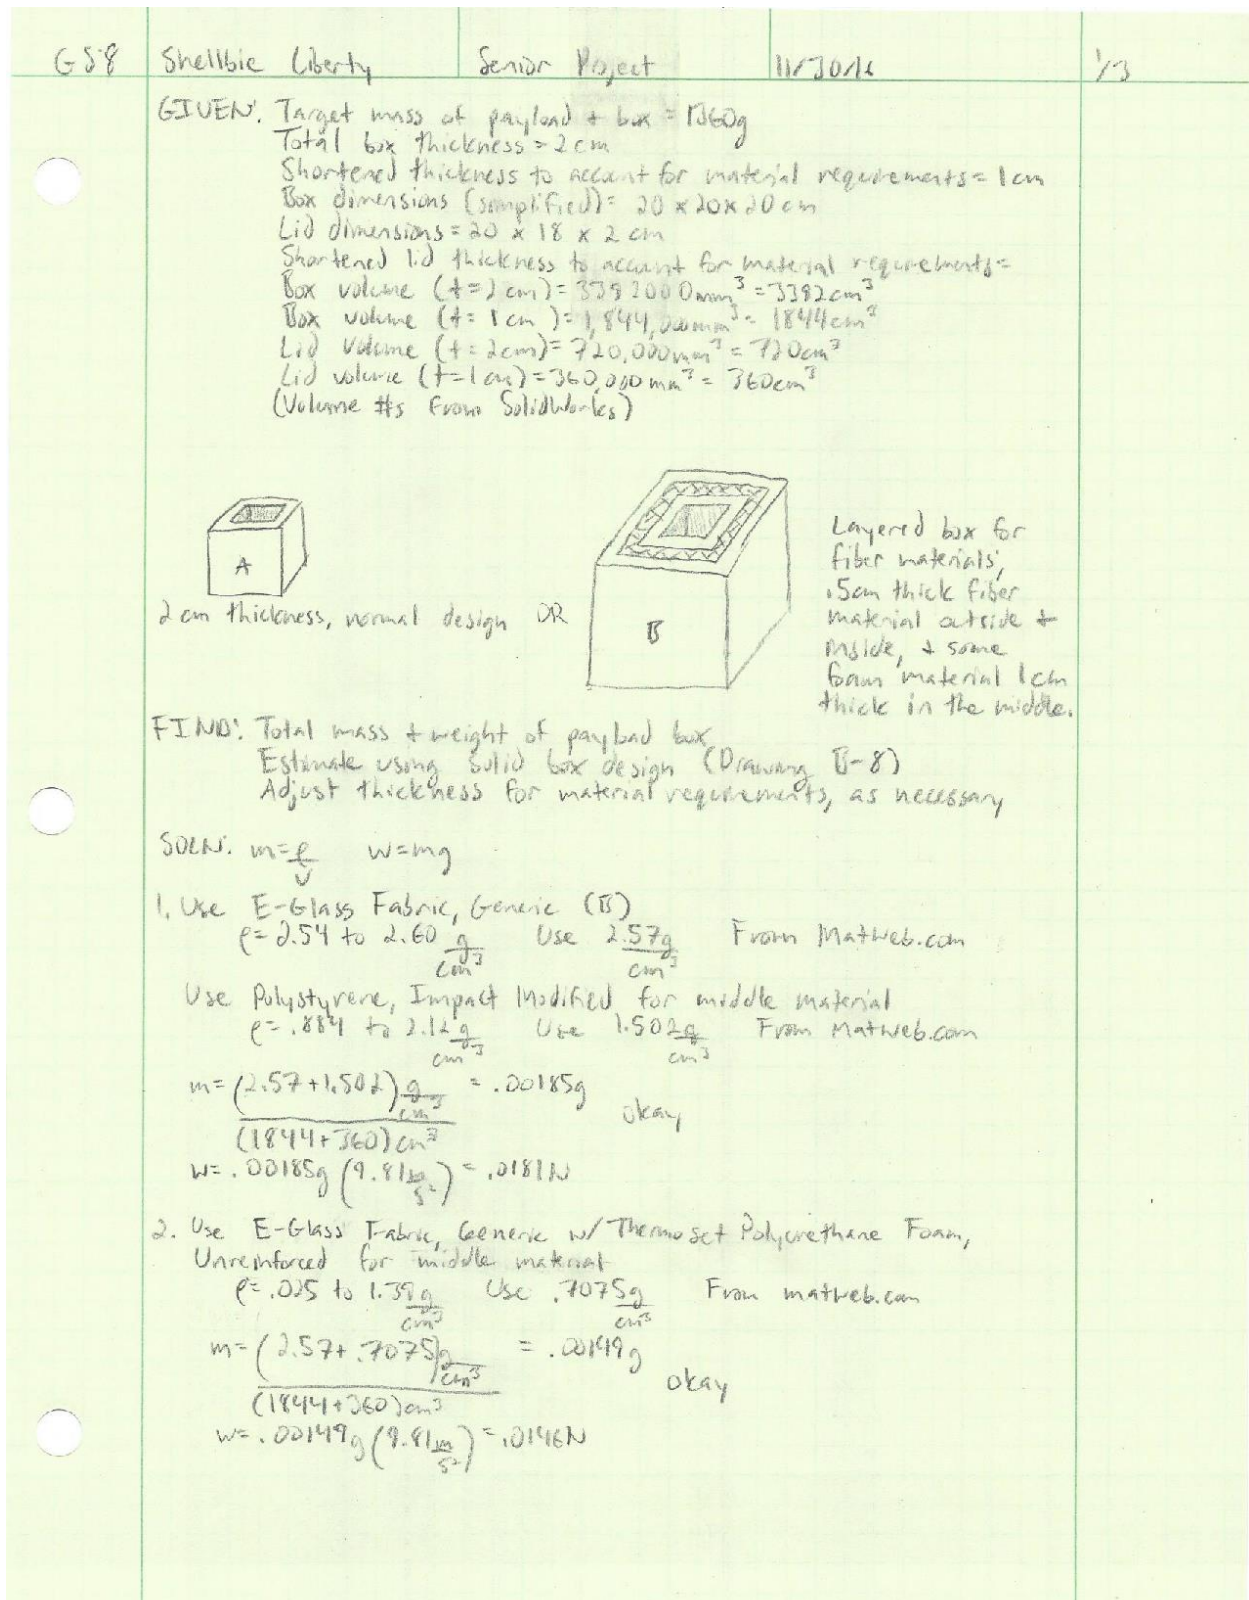 GS8 Shellbie Liberty Senior Project 11/30/16 1/3
GIVEN: Target mass of payload + box = 1360g
Total box thickness = 2cm
Shortened thickness to account for material requirements = 1cm
Box dimensions (simplified) = 20 x 20 x 20 cm
Lid dimensions = 20 x 18 x 2 cm
Shortened lid thickness to account for material requirements =
Box volume (t=2cm) = 3392000mm³ = 3392cm³
Box volume (t= 1cm) = 1,844,000mm³ = 1844cm³
Lid volume (t=2cm) = 720,000mm³ = 720cm³
Lid volume (t=1cm) = 360,000mm³ = 360cm³
(Volume #s from SolidWorks)
A
2 cm thickness, normal design OR
B
Layered box for
fiber materials,
.5cm thick fiber
material outside +
inside, + some
foam material 1cm
thick in the middle.
FIND: Total mass + weight of payload box
Estimate using solid box design (Drawing B-8)
Adjust thickness for material requirements, as necessary
SOLN: m=ρ/v w=mg
1. Use E-Glass Fabric, Generic (B)
ρ= 2.54 to 2.60 g/cm³ Use 2.57g/cm³ From Matweb.com
Use Polystyrene, Impact Modified for middle material
ρ= .884 to 2.12 g/cm³ Use 1.502g/cm³ From Matweb.com
m= (2.57+1.502) g/cm³ = .00185g
(1844+360)cm³ okay
w= .00185g (9.81m/s²) = .0181N
2. Use E-Glass Fabric, Generic w/ Thermoset Polyurethane Foam,
Unreinforced for middle material
ρ= .025 to 1.39g/cm³ Use .7075g/cm³ From matweb.com
m= (2.57+.7075)g/cm³ = .00149g
(1844+360)cm³ okay
w= .00149g (9.81m/s²) = .0146N